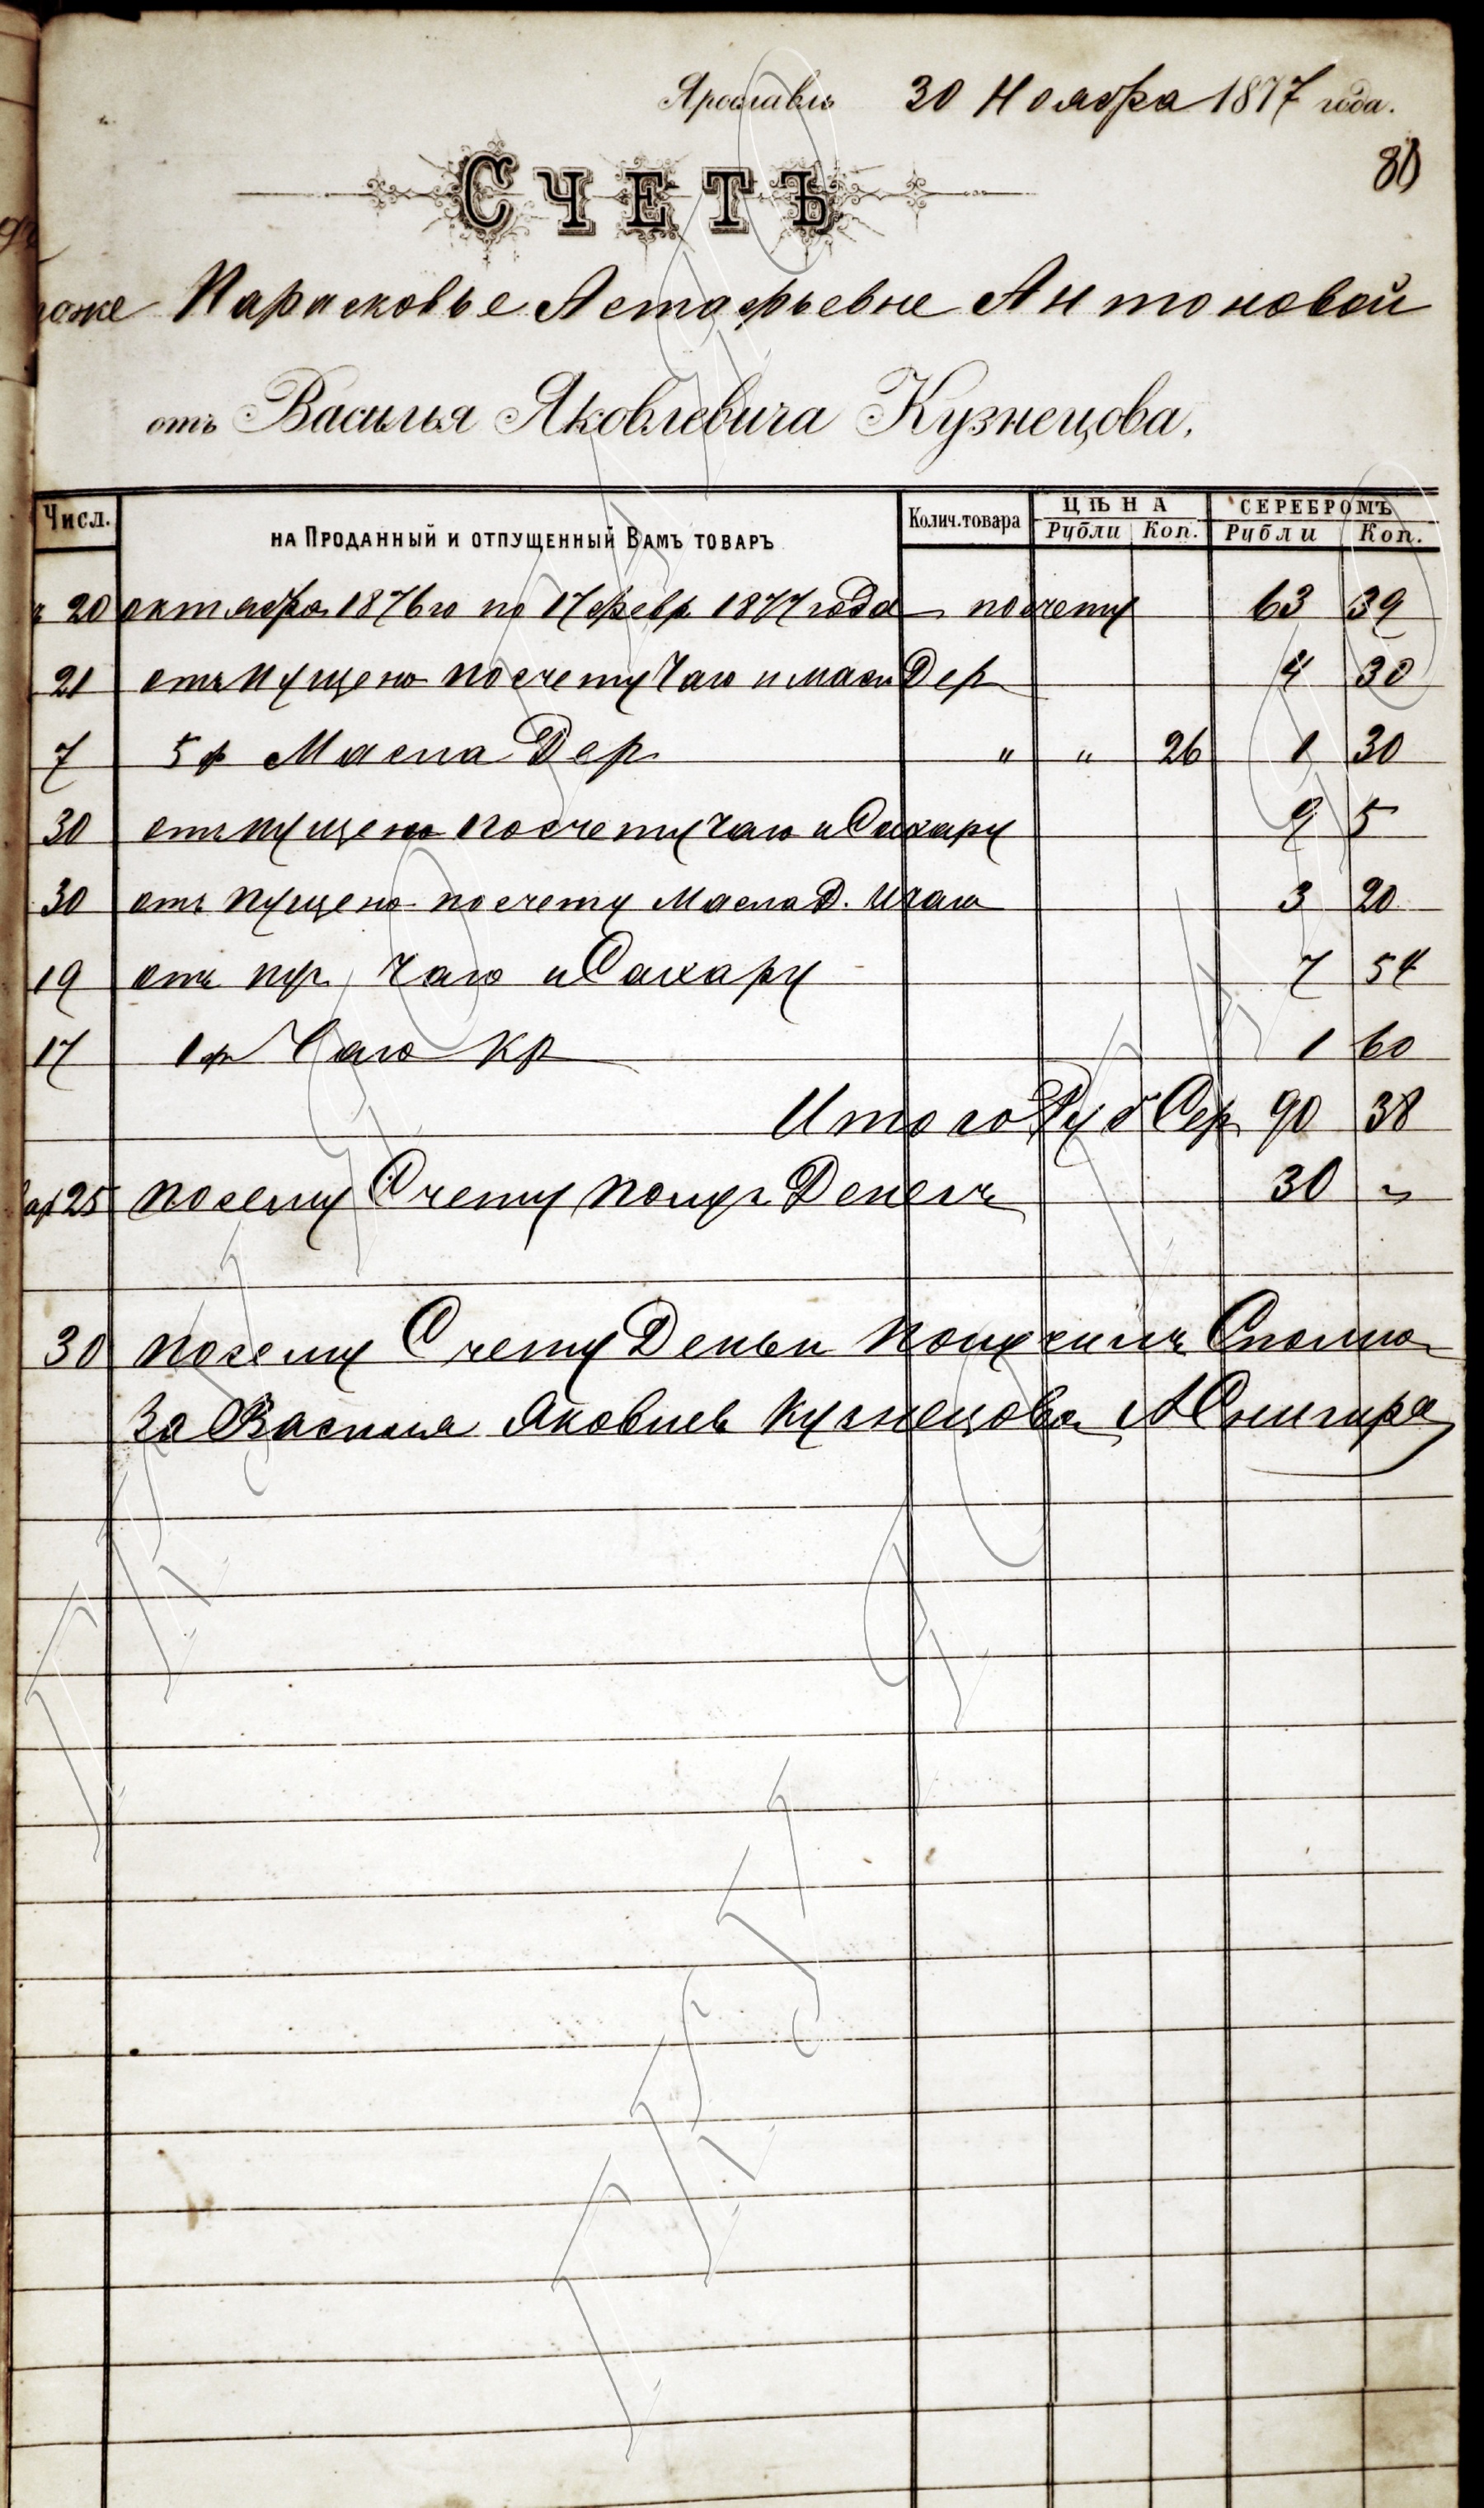 Ярославль 30 Ноября 1877 года.
80
СЧЕТЪ
Парасковье Астафьевне Антоновой
отъ Василья Яковлевича Кузнецова.
Числ. на Проданный и отпущенный Вамъ товаръ Колич. товара ЦѢНА Рубли Коп. СЕРЕБРОМЪ Рубли Коп.
20 октября 1876го по 17 февр 1877 года по счету 63 39
21 отъпущено по счету Чаю и масл Дер 4 30
7 5 ф Масла Дер " " 26 1 30
30 отъпущено по счету Чаю и Сахару 9 5
30 отъ пущено по счету Масла Д. И чаю 3 20
19 отъ пу Чаю и Сахару 7 54
17 1 ф Чаю кр 1 60
Итого Руб Сер 90 38
25 по сему Счету получ Денегъ 30 "
30 по сему Счету Деньги получилъ Сполна
За Василья Яковлев Кузнецова